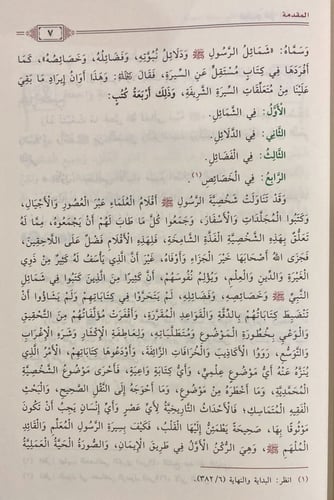 المقدمة
٧
وَسَمَّاهُ: «شَمَائِلُ الرَّسُولِ ﷺ وَدَلَائِلُ نُبُوَّتِهِ، وَفَضَائِلُهُ، وَخَصَائِصُهُ»، كَمَا
أَفْرَدَهَا فِي كِتَابٍ مُسْتَقِلٍّ عَنِ السِّيرَةِ، فَقَالَ ﵀: وَهَذَا أَوَانُ إِيرَادِ مَا بَقِيَ
عَلَيْنَا مِنْ مُتَعَلِّقَاتِ السِّيرَةِ الشَّرِيفَةِ، وَذَلِكَ أَرْبَعَةُ كُتُبٍ:
الْأَوَّلُ: فِي الشَّمَائِلِ.
الثَّانِي: فِي الدَّلَائِلِ.
الثَّالِثُ: فِي الْفَضَائِلِ.
الرَّابِعُ: فِي الْخَصَائِصِ(١).
وَقَدْ تَنَاوَلَتْ شَخْصِيَّةَ الرَّسُولِ ﷺ أَقْلَامُ الْعُلَمَاءِ عَبْرَ الْعُصُورِ وَالْأَجْيَالِ،
وَكَتَبُوا الْمُجَلَّدَاتِ وَالْأَسْفَارَ، وَجَمَعُوا كُلَّ مَا طَابَ لَهُمْ أَنْ يَجْمَعُوهُ، مِمَّا لَهُ
تَعَلُّقٌ بِهَذِهِ الشَّخْصِيَّةِ الْفَذَّةِ الشَّامِخَةِ، فَلِهَذِهِ الْأَقْلَامِ فَضْلٌ عَلَى اللَّاحِقِينَ،
فَجَزَى اللهُ أَصْحَابَهَا خَيْرَ الْجَزَاءِ وَأَوْفَاهُ، غَيْرَ أَنَّ الَّذِي يَأْسَفُ لَهُ كَثِيرٌ مِنْ ذَوِي
الْغَيْرَةِ وَالدِّينِ وَالْعِلْمِ، وَيُؤْلِمُ نُفُوسَهُمْ، أَنَّ كَثِيرًا مِنَ الَّذِينَ كَتَبُوا فِي شَمَائِلِ
النَّبِيِّ ﷺ وَخَصَائِصِهِ، وَفَضَائِلِهِ، لَمْ يَتَحَرَّوْا فِي كِتَابَاتِهِمْ وَلَمْ يَشَاؤُوا أَنْ
تَنْضَبِطَ كِتَابَاتُهُمْ بِالدِّقَّةِ وَالْقَوَاعِدِ الْمُقَرَّرَةِ، وَأَقْفَرَتْ مُؤَلَّفَاتُهُمْ مِنَ التَّحْقِيقِ
وَالْوَعْيِ بِخُطُورَةِ الْمَوْضُوعِ وَمُتَطَلَّبَاتِهِ، وَلِعَاطِفَةِ الْإِكْثَارِ وَشَرَهِ الْإِغْرَابِ
وَالتَّوَسُّعِ، رَوَوُا الْأَكَاذِيبَ وَالْخُرَافَاتِ الزَّائِفَةَ، وَأَوْدَعُوهَا كِتَابَاتِهِمْ، الْأَمْرُ الَّذِي
يُنَزَّهُ عَنْهُ أَيُّ مَوْضُوعٍ عِلْمِيٍّ، وَأَيُّ كِتَابَةٍ وَاعِيَةٍ، فَأَحْرَى مَوْضُوعُ الشَّخْصِيَّةِ
الْمُحَمَّدِيَّةِ، وَمَا أَخْطَرَهُ مِنْ مَوْضُوعٍ، وَمَا أَحْوَجَهُ إِلَى النَّقْلِ الصَّحِيحِ، وَالْبَحْثِ
الْفَقِيهِ الْمُتَمَاسِكِ، فَالْأَحْدَاثُ التَّارِيخِيَّةُ لِأَيِّ عَصْرٍ وَأَيِّ إِنْسَانٍ يَجِبُ أَنْ تَكُونَ
مَوْثُوقًا بِهَا، صَحِيحَةً يَطْمَئِنُّ إِلَيْهَا الْقَلْبُ، فَكَيْفَ بِسِيرَةِ الرَّسُولِ الْمُعَلِّمِ وَالْقَائِدِ
الْمُلْهَمِ ﷺ، وَهِيَ الرُّكْنُ الْأَوَّلُ فِي طَرِيقِ الْإِيمَانِ، وَالصُّورَةُ الْحَيَّةُ الْعَمَلِيَّةُ
(١) انظر: البداية والنهاية (٣٨٢/٦).